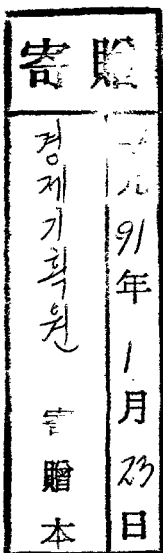 寄贈
一九91年 1月 23日
경제기획원 寄贈本